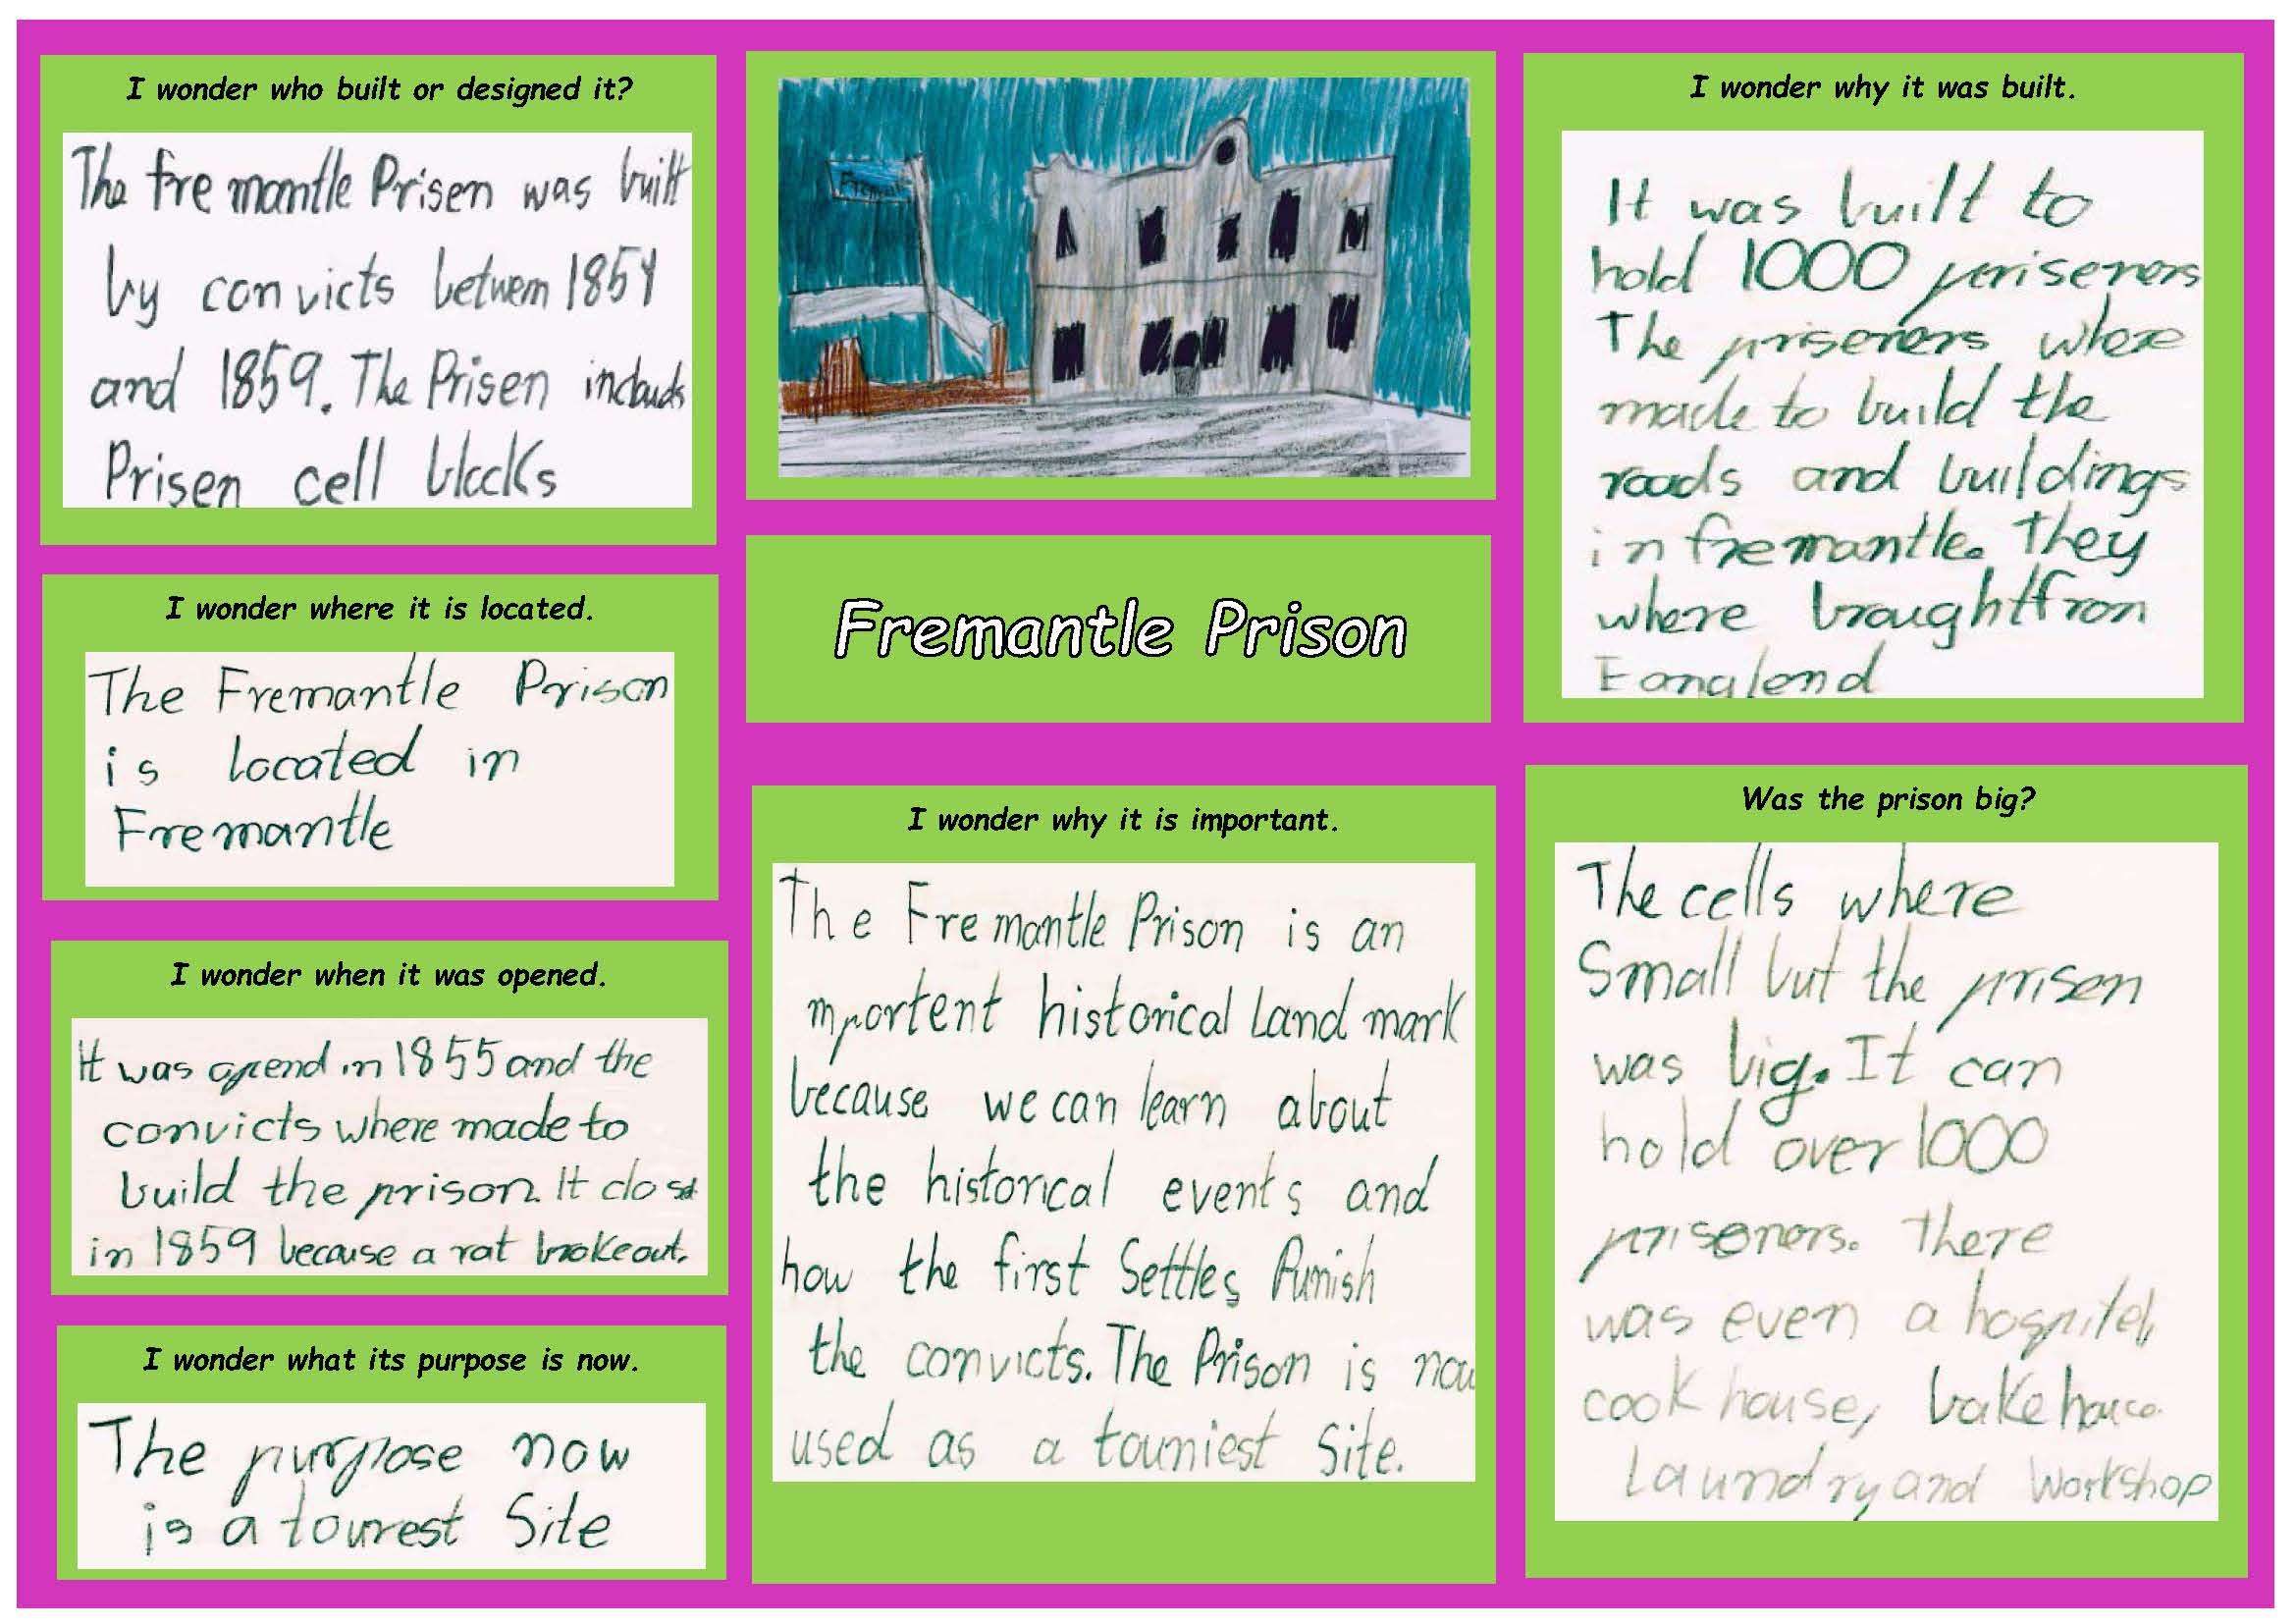 I wonder who built or designed it?
The fremantle Prisen was built
by convicts betwem 1854
and 1859. The Prisen includs
Prisen cell blocks
I wonder where it is located.
The Fremantle Prison
is located in
Fremantle
I wonder when it was opened.
It was opend in 1855 and the
convicts where made to
build the prison. It close
in 1859 because a rat brokeout.
I wonder what its purpose is now.
The purpose now
is a tourest Site
Fremantle Prison
I wonder why it is important.
The Fremantle Prison is an
mportent historical Land mark
because we can learn about
the historical events and
how the first Settles Punish
the convicts. The Prison is now
used as a touniest Site.
I wonder why it was built.
It was built to
hold 1000 periseners
The priseners where
made to build the
roads and buildings
in fremantle. They
where broughtfron
Eanglend
Was the prison big?
The cells where
Small but the prisen
was big. It can
hold over 1000
prisoners. There
was even a hospitel,
cook house, bake house
Laundry and Workshop